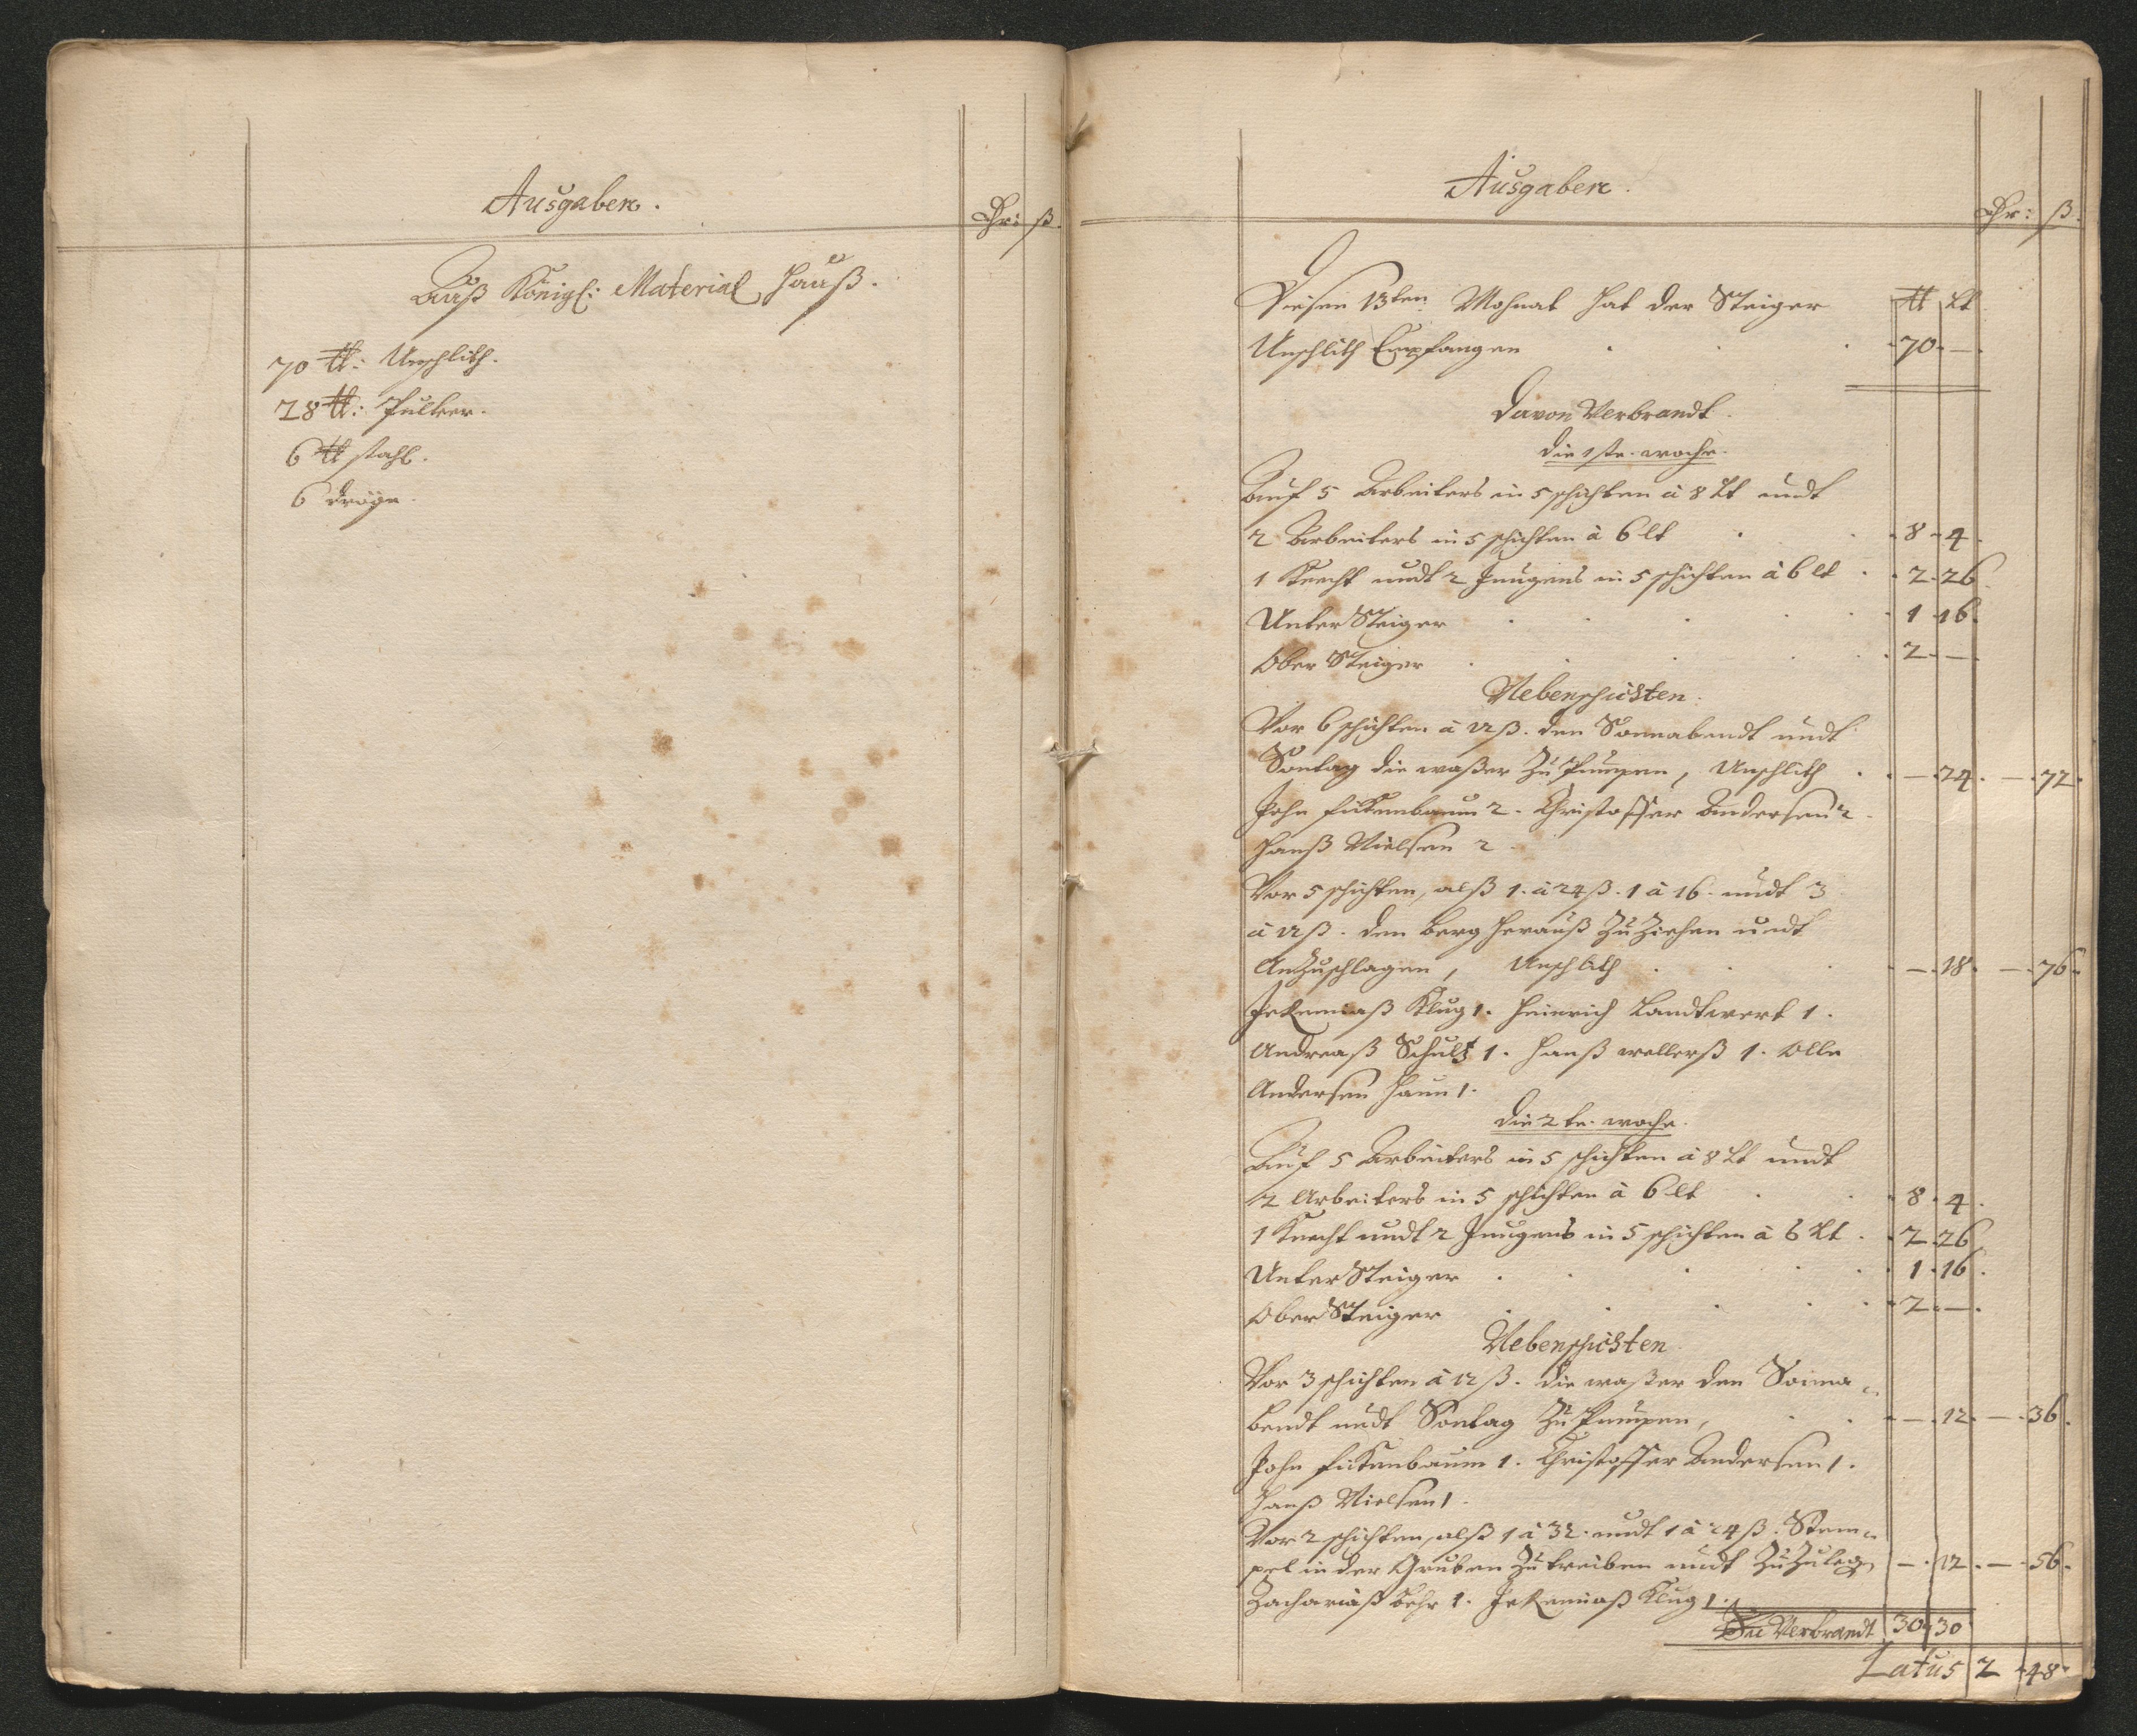 Ausgaben.
Thr: ß.
Auß Königl: Material Hauß.
70 ℔: Unschlith.
28 ℔: Pulver.
6 ℔ stahl.
6 Tröge.
Ausgaben.
Thr: ß.
Diesen 13ten Mohnat hat der Steiger ℔ Lt
Unschlith Empfangen 70 —
Davon Verbrandt.
die 1ste. woche.
Auf 5 Arbeiters in 5 schichten â 8 Lt undt
2 Arbeiters in 5 schichten â 6 lt 8 4
1 Knecht undt 2 Jungens in 5 schichten â 6 lt 2 26
Unter Steiger 1 16
Ober Steiger 2 —
Nebenschichten.
Vor 6 schichten â 12 ß. den Sonnabendt undt
Sontag die waßer zu Pumpen, Unschlith — 24 — 72
John fickenbaum 2. Christoffer Andersen 2.
Hanß Nielsen 2
Vor 5 schichten, alß 1. â 24 ß. 1 â 16. undt 3
â 12 ß. den berg herauß zu Ziehen undt
Anzuschlagen, Unschlith — 18 — 76
Jeremiaß Klug 1. Heinrich Landtwert 1.
Andreaß Schultz 1. Hanß wellerß 1. Olle
Andersen Haun 1.
die 2te. woche.
Auf 5 Arbeiters in 5 schichten â 8 Lt undt
2 Arbeiters in 5 schichten â 6 lt 8 4
1 Knecht undt 2 Jungens in 5 schichten â 6 Lt 2 26
Unter Steiger 1 16
Ober Steiger 2 —
Nebenschichten
Vor 3 schichten â 12 ß. die waßer den Sonna-
bendt undt Sontag zu Pumpen, — 12 — 36
John fickenbaum 1. Christoffer Andersen 1.
Hanß Nielsen 1.
Vor 2 schichten, alß 1 â 32. undt 1 â 24 ß. Stem-
pel in der Gruben zu treiben undt zu Zulegen — 12 — 56
Zachariaß behr 1. Jeremiaß Klug 1.
Verbrandt 30 30
Latus 2 48